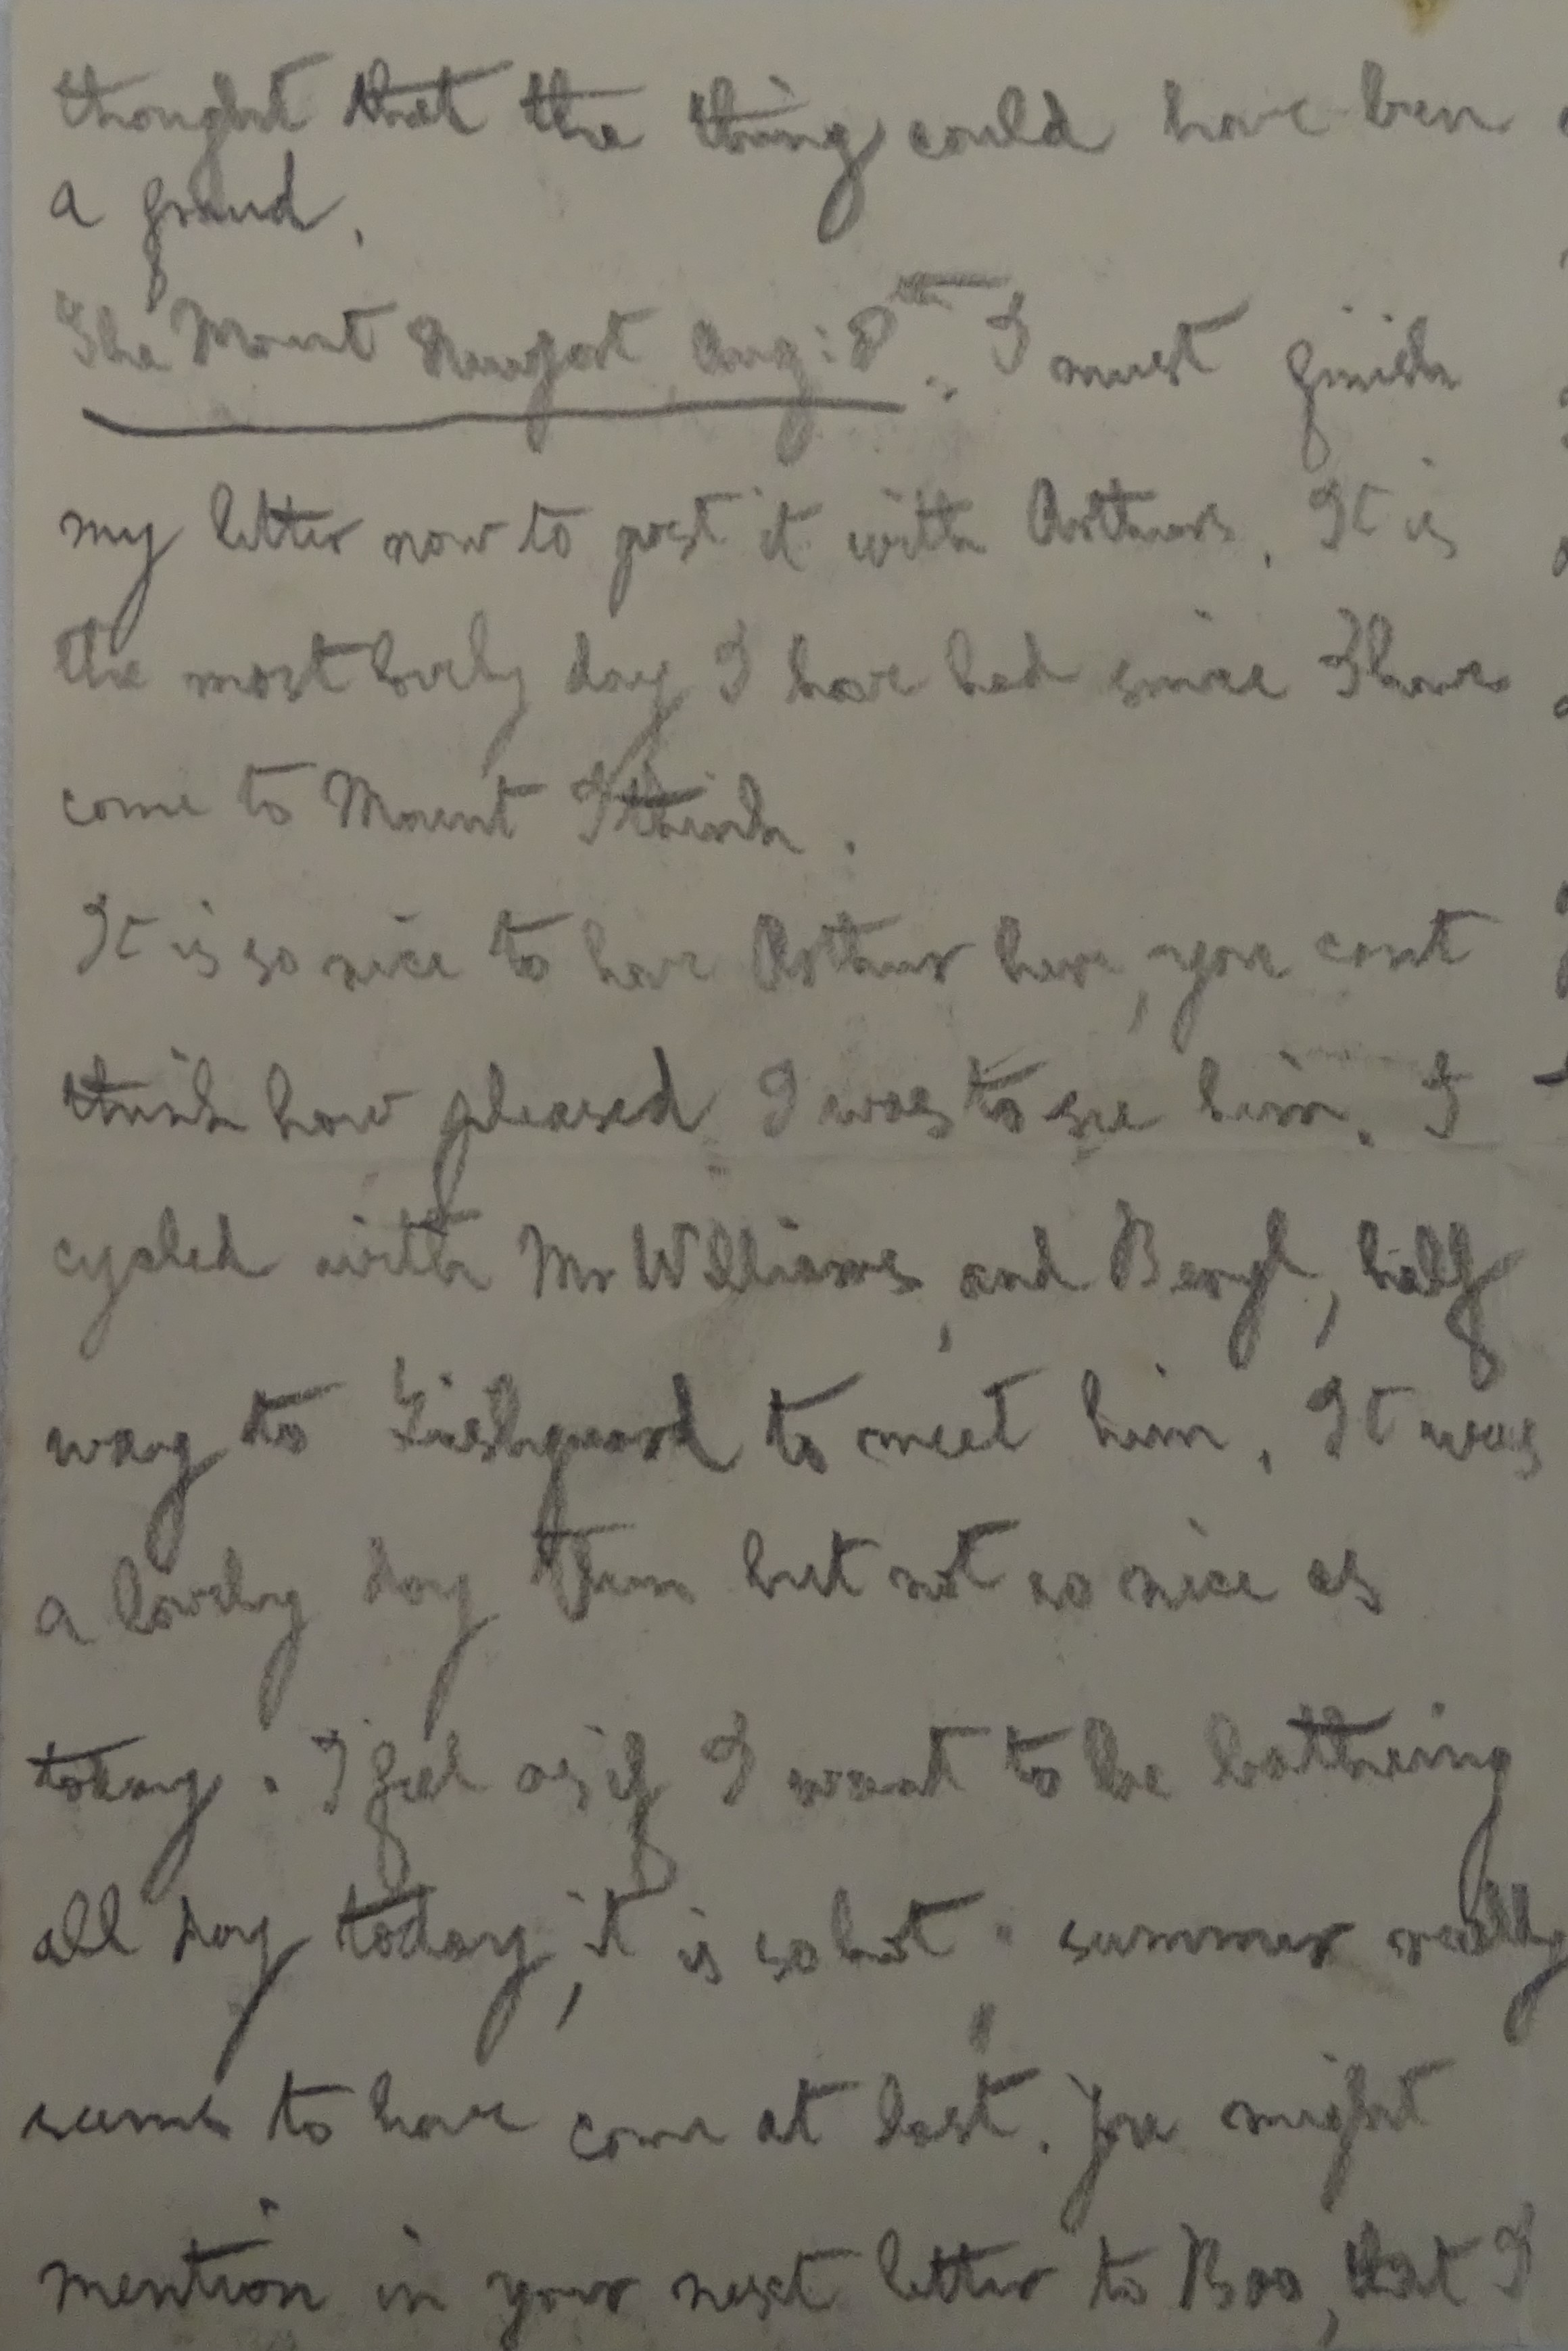 thought that the thing could have been
a fraud.
The Mount Newport, Aug: 8th. I must finish
my letter now to post it with Arthurs. It is
the most lovely day I have had since I have
come to Mount I think.
It is so nice to have Arthur here, you cant
think how pleased I was to see him. I
cycled with Mr Williams, and Beryl, half
way to Fishguard to meet him. It was
a lovely day then but not so nice as
today. I feel as if I want to be bathing
all day today, it is so hot. summer really
seems to have come at last. You might
mention in your next letter to Boo, that I